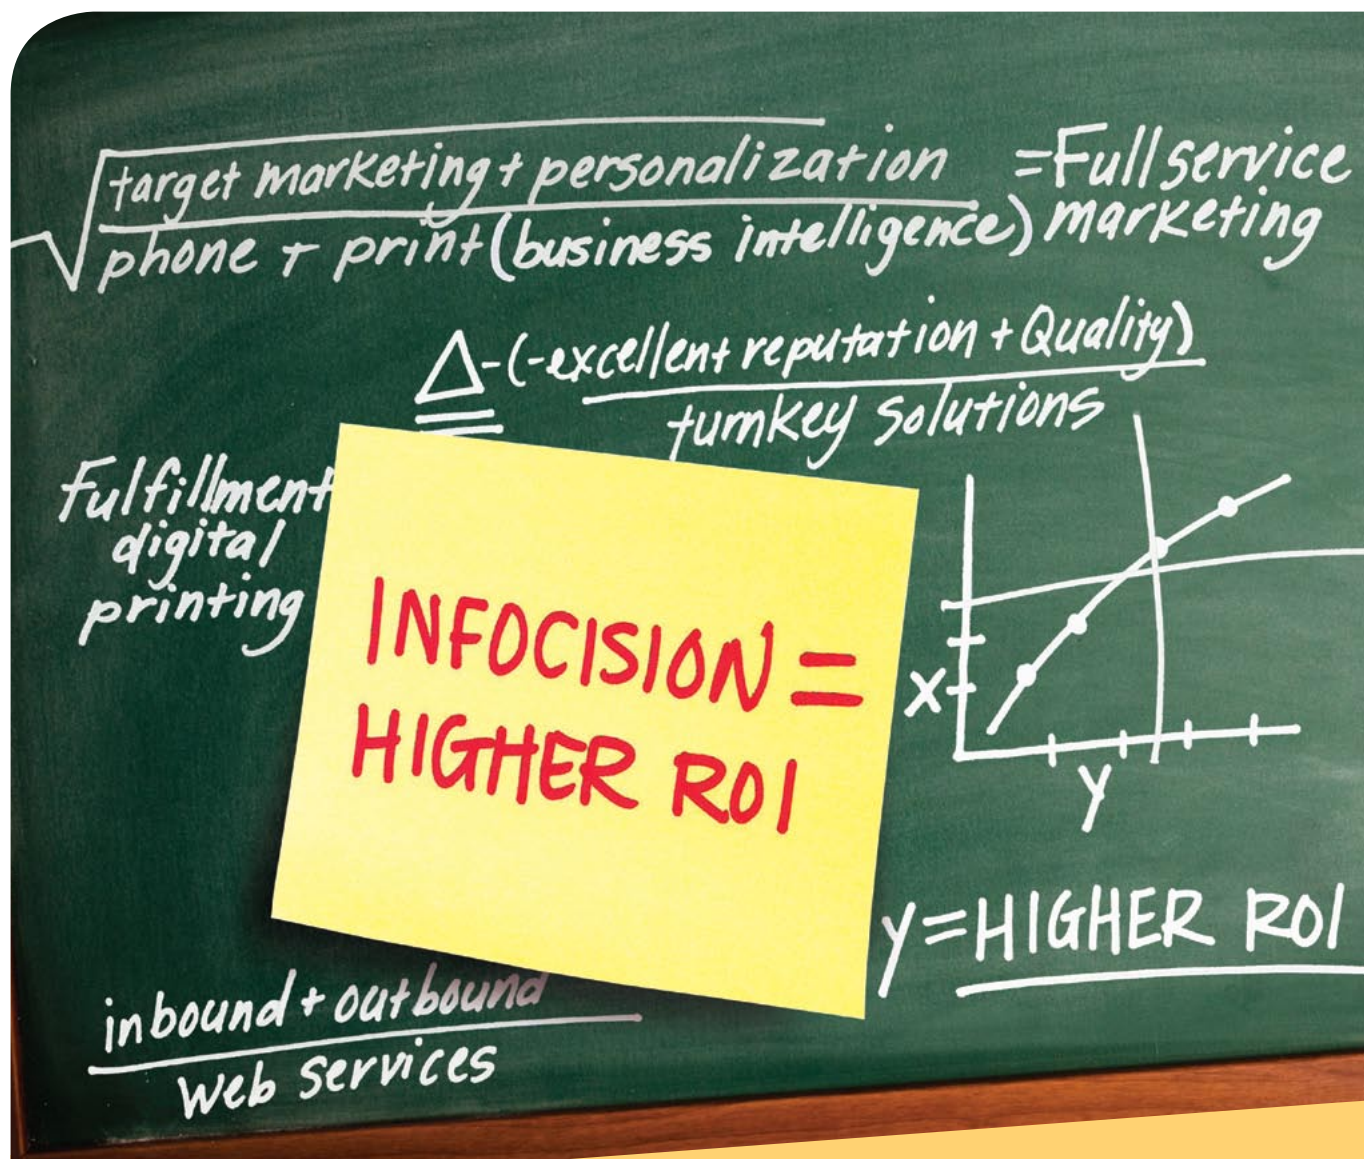 target marketing + personalization
phone + print (business intelligence)
= Full service
marketing
Δ - (-excellent reputation + Quality)
turnkey solutions
Fulfillment
digital
printing
INFOCISION =
HIGHER ROI
X
y
y = HIGHER ROI
inbound + outbound
Web Services